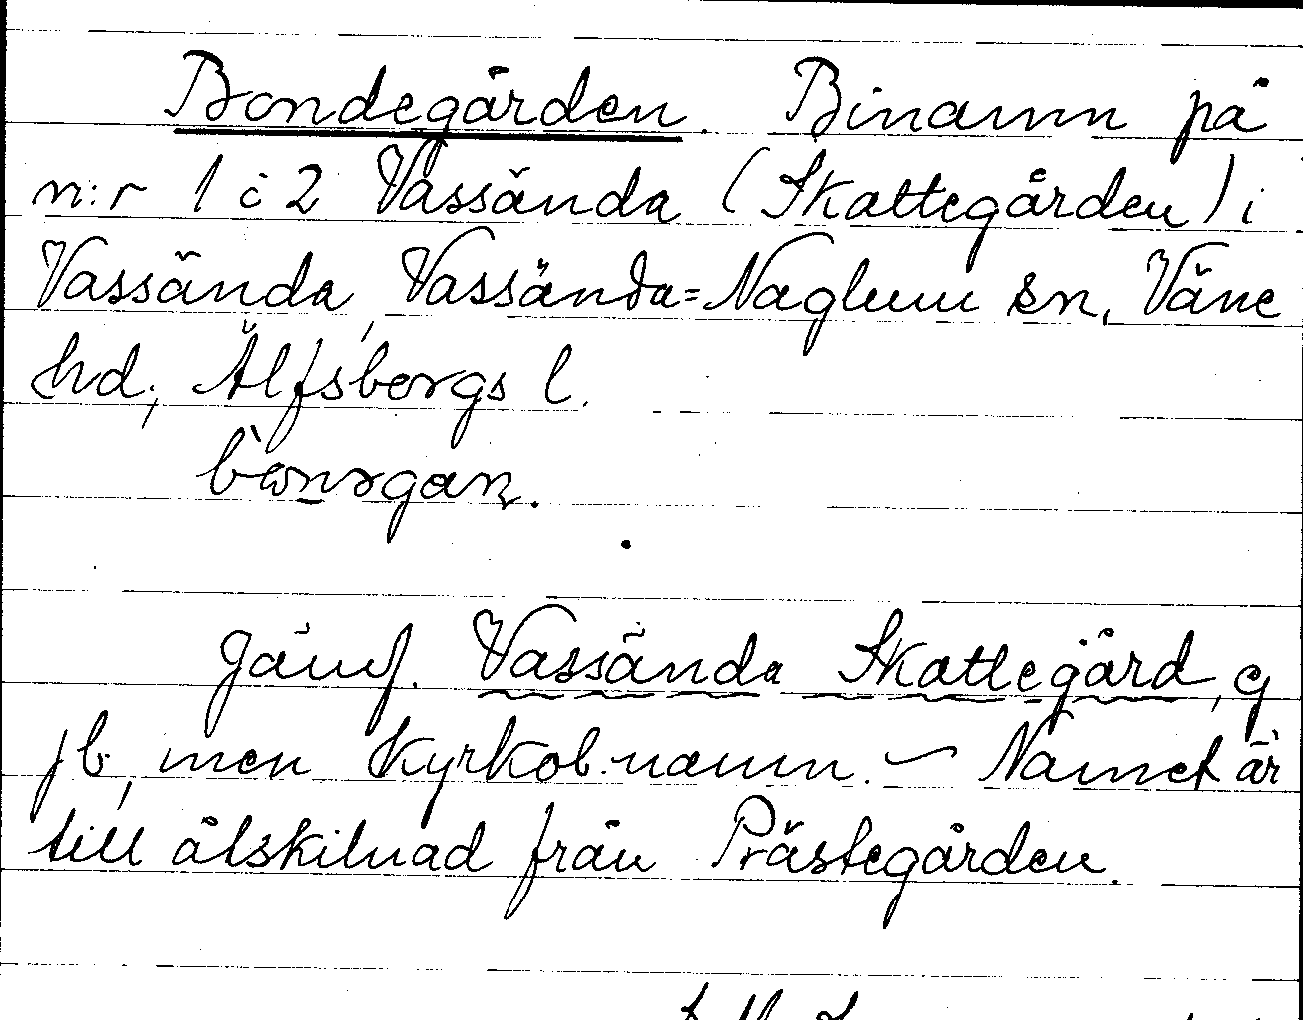 Bondegården. Binamn på
n:r 1 o 2 Vassända (Skattegården) i
Vassända, Vassända=Naglum sn, Väne
hd, Älfsborgs l.
Jämf. Vassända Skattegård, ej
jb, men kyrkob.namn. – Namnet är
till åtskilnad från Prästegården.